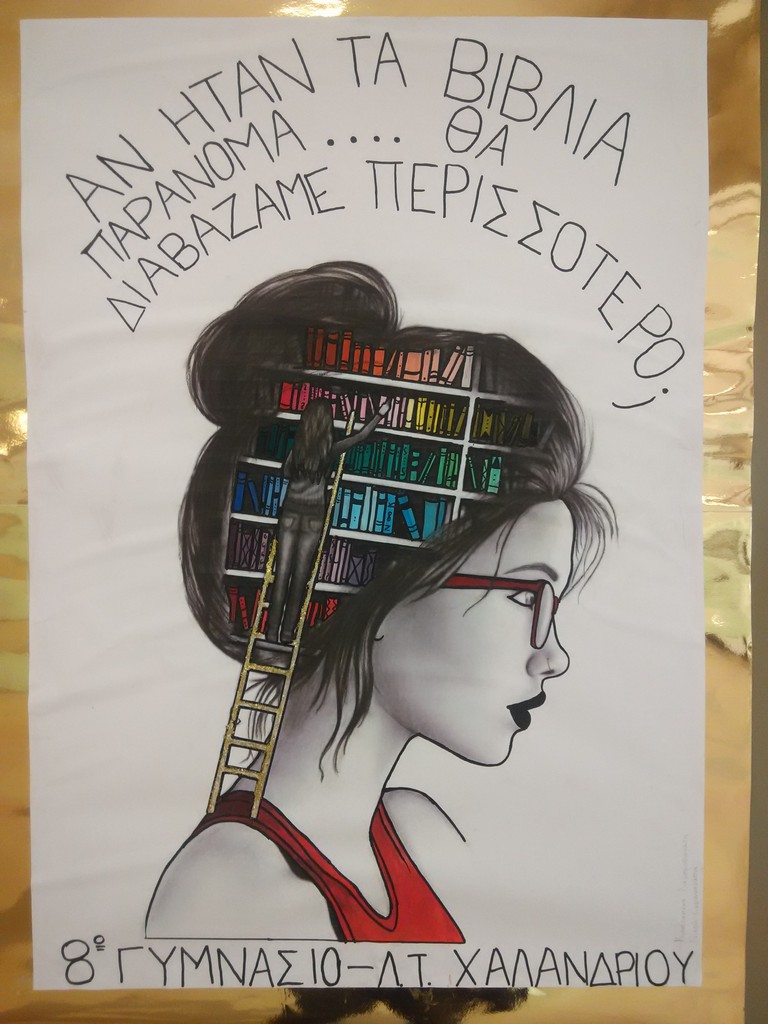 ΑΝ ΗΤΑΝ ΤΑ ΒΙΒΛΙΑ
ΠΑΡΑΝΟΜΑ .... ΘΑ
ΔΙΑΒΑΖΑΜΕ ΠΕΡΙΣΣΟΤΕΡΟ;
8º ΓΥΜΝΑΣΙΟ-Λ.Τ. ΧΑΛΑΝΔΡΙΟΥ